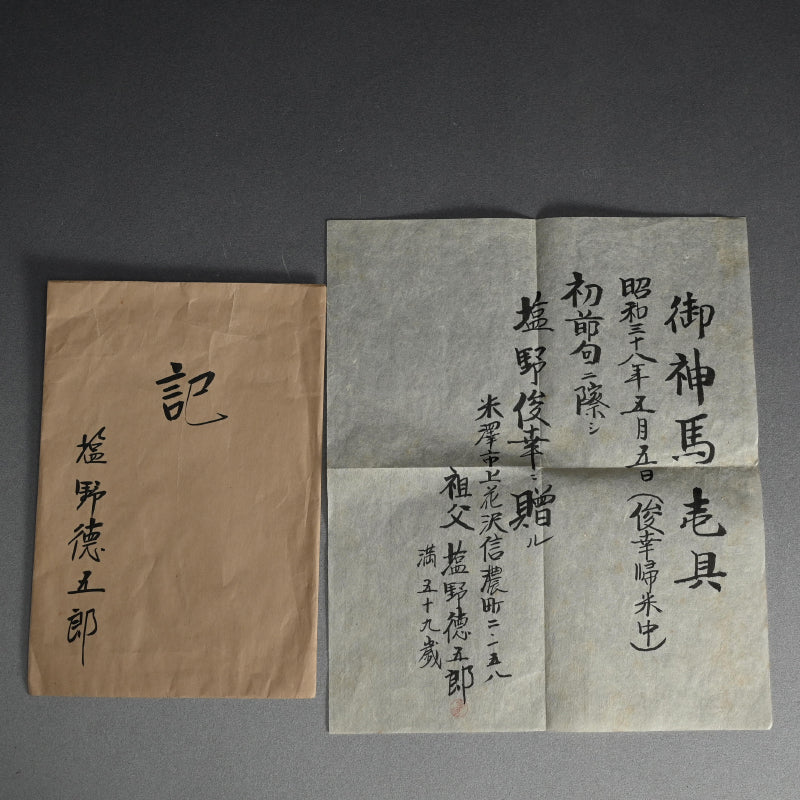 記
塩野德五郎
御神馬壱具
昭和三十八年五月五日(俊幸帰米中)
初節句ニ際シ
塩野俊幸ニ贈ル
米澤市上花沢信濃町二ノ五八
祖父 塩野德五郎
満五十九歳